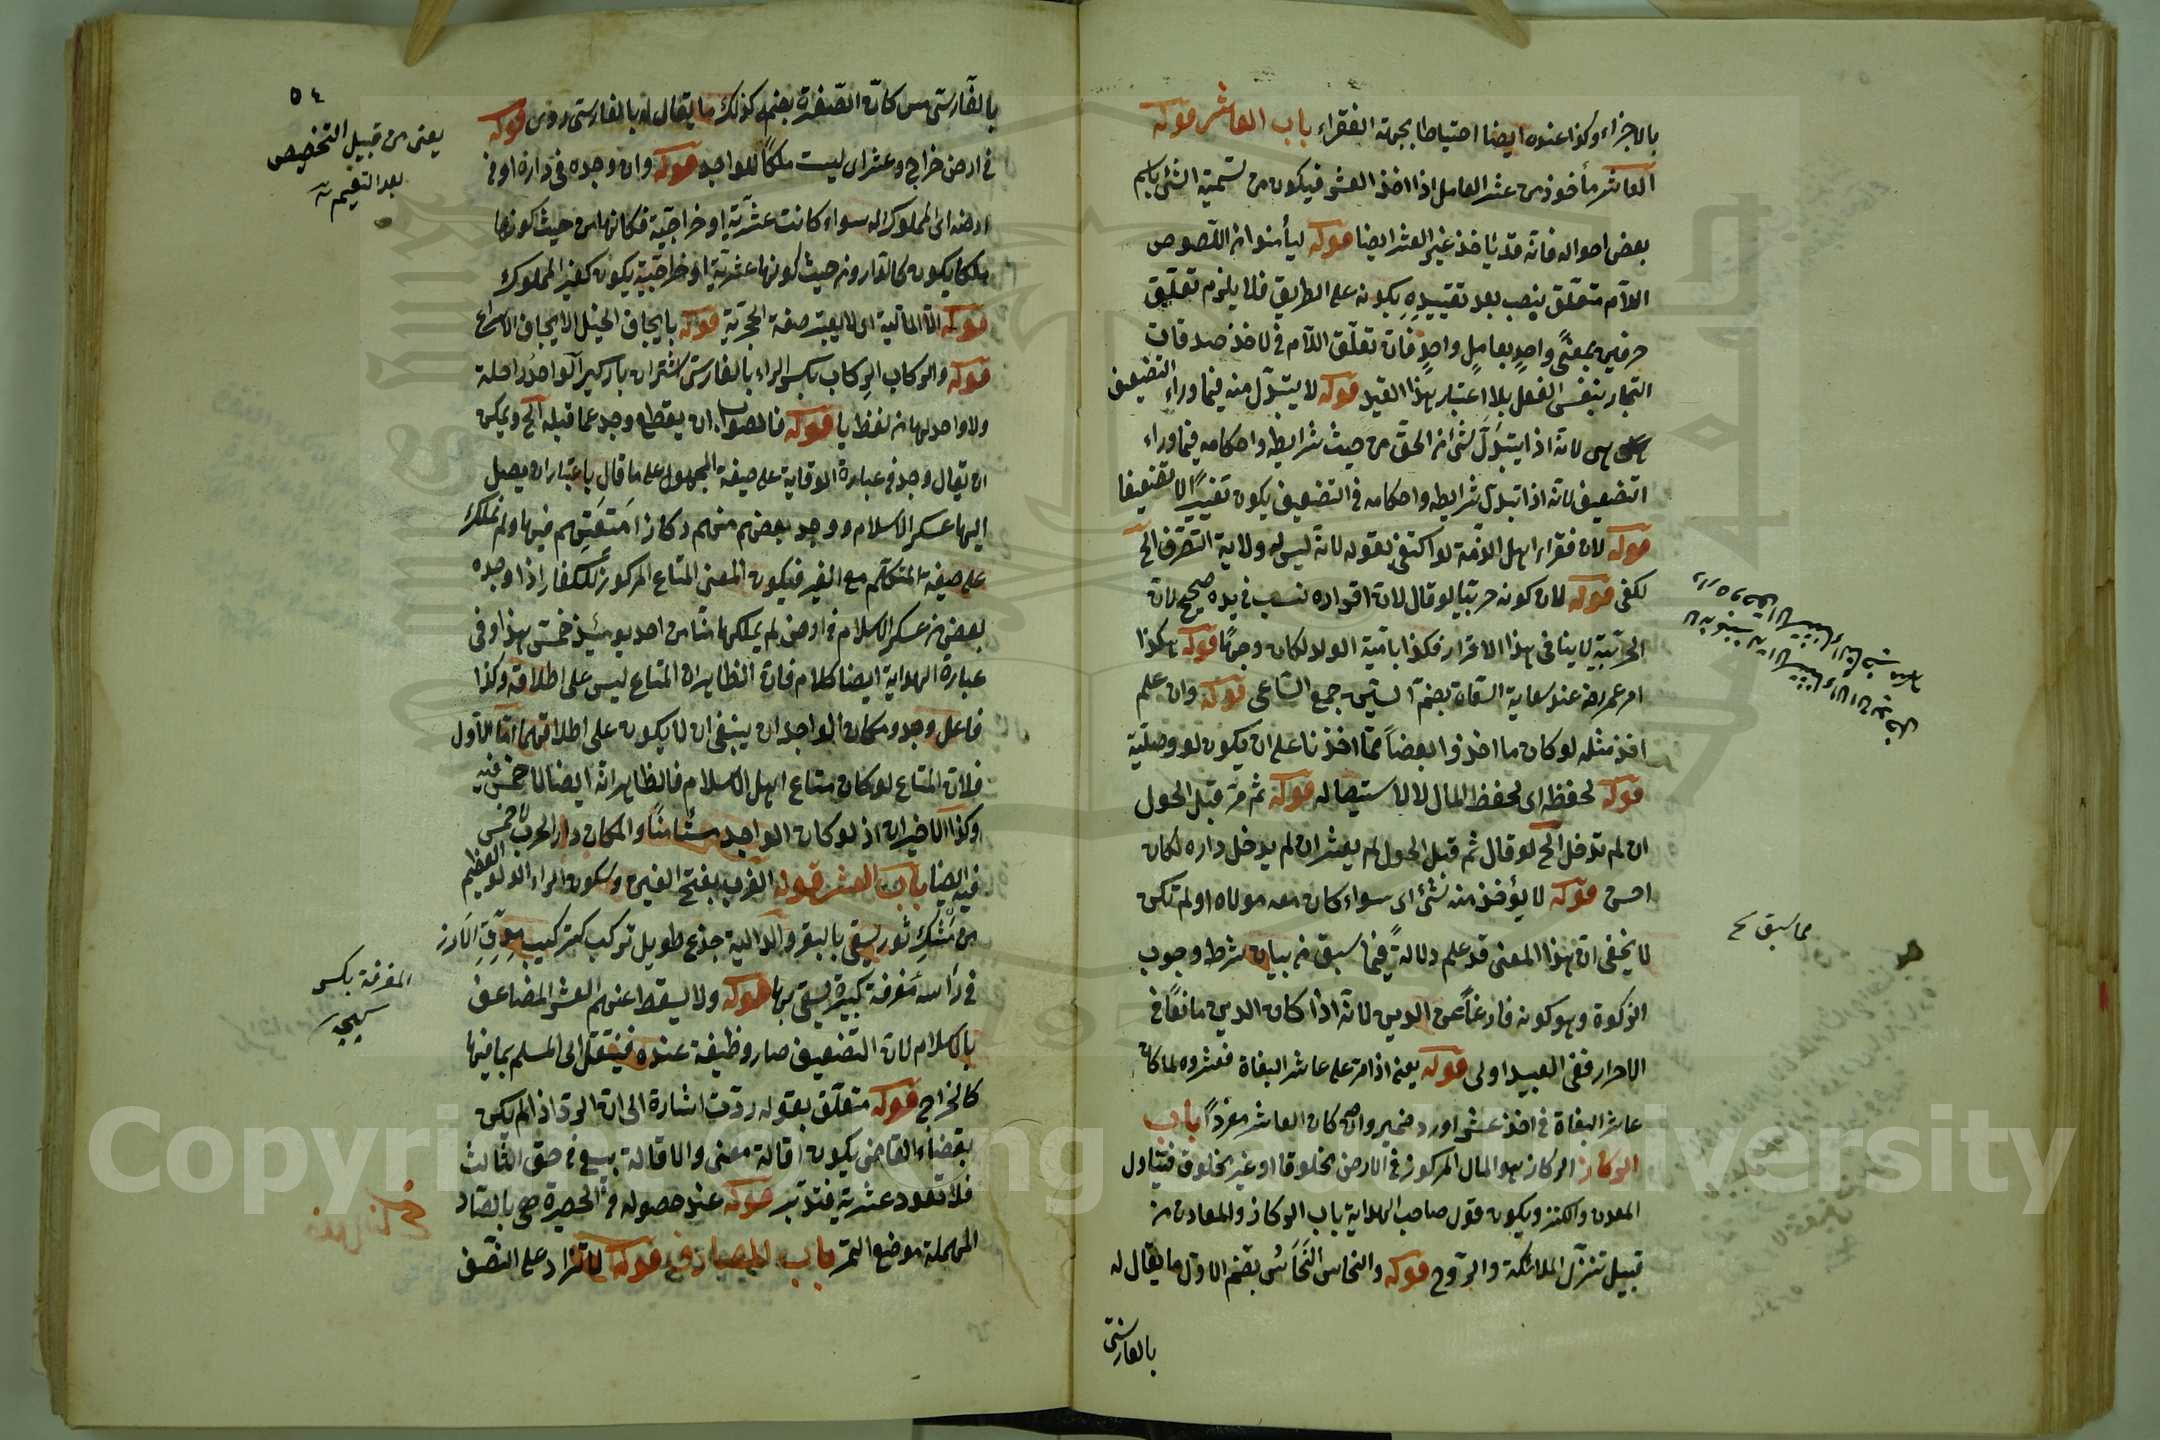 بالاجزاء وكذا عنده ايضا احتياطا بجهة الفقراء باب العاشر قوله
العاشر مأخوذ من عشر العامل اذا اخذ العشر فيكون من تسمية الشئ باسم
بعض احواله فانه قد يأخذ غير العشر ايضا قوله ليأمنوا من اللصوص
اللام متعلق بنصب بعد تقييده بكونه على الطريق فلا يلزم تعلق
حرفين بمعنى واحد بعامل واحد فان تعلق اللام في لاخذ صدقات
التجار بنفس الفعل بلا اعتبار هذا القيد قوله لا يتبدل منه فيما وراء التضعيف
لانه اذا يتبدل شئ من الحق من حيث شرايطه واحكامه فيما وراء
التضعيف لانه اذا تبدل شرايطه واحكامه في التضعيف يكون تغييرا لا تضعيفا
قوله لان فقراء اهل الذمة لو اكتفى بقوله لانه ليس له ولاية التصرف الخ
لكفى قوله لان كونه حربيا لو قال لان اقراره بنسب في يده صحيح لان
الحربية لا ينافى هذا الاقرار فكذا بامية الولد لكان وجها قوله هكذا
امر عمر رضه عند سعاية السقاة بضم السين جمع الساعى قوله وان علم
اخذ مثله لو كان ما اخذوا بعضا مما اخذنا على ان يكون لو وصلية
قوله لحفظه اى لحفظ المال لا لاستيصاله قوله ثم مر قبل الحول
ان لم تدخل الخ لو قال ثم قبل الحول لم يعشر ان لم يدخل داره لكان
احسن قوله لا يؤخذ منه شئ اى سواء كان معه مولاه او لم تكن
لا يخفى ان هذا المعنى قد علم دلالة فيما سبق من بيان شرط وجوب
الزكوة وهو كونه فارغا عن الدين لانه اذا كان الدين مانعا في
الاحرار ففى العبيد اولى قوله يعنى اذا مر على عاشر البغاة فعشروه لما كان
عاشر البغاة في اخذ عشر اورد ضمير وان كان العاشر مفردا باب
الركاز الركاز هو المال المركوز في الارض مخلوقا او غير مخلوق فيتناول
المعدن والكنز ويكون قول صاحب الهداية باب الركاز والمعادن من
قبيل تنزل الملائكة والروح قوله والنحاس النحاس بضم الاول ما يقال له
بالفارسى
مما سبق
٥٤
يعنى من قبيل التخصيص
بعد التعميم
بالفارسى مس كان الصفر بضم كذلك ما يقال له بالفارسى روى قوله
في ارض خراج وعشر اى ليست ملكا للواجد قوله وان وجده في داره او في
ارضه اى المملوك له سواء كانت عشرية او خراجية فكانها من حيث كونها
ملكا يكون كالدار ومن حيث كونها عشرية او خراجية يكون كغير المملوك
قوله الا المالية اى لا يعتبر صفة الحجرية قوله بايجاف الخيل الايجاف الاسراع
قوله والركاب الركاب بكسر الراء بالفارسى شتران باركير الواحد راحلة
ولا واحد لها من لفظها قوله فالصواب ان يقطع وجد عما قبله الخ ويمكن
ان يقال وجد في عبارة الوقاية على صيغة المجهول على ما قال باعتبار ان يصل
اليها عسكر الاسلام ووجد بعض منهم ركازا متعتهم فيها ولم نملك
على صيغة المتكلم مع الغير فيكون المعنى المتاع المركوز للكفار اذا وجده
بعض من عسكر الاسلام في ارض لم يملكها منا من احد يومئذ خمس هذا وفى
عبارة الهداية ايضا كلام فان الظاهر ان المتاع ليس على اطلاقه وكذا
فاعل وجد ومكان الواجد ان ينبغى ان لا يكون على اطلاقهما اما الاول
فلان المتاع لو كان متاع اهل الاسلام فالظاهر انه ايضا لا خمس فيه
وكذا الاخيران اذ لو كان الواجد مستأمنا والمكان دار الحرب لا خمس
فيه ايضا باب العشر قوله الغرب بفتح الغين وسكون الراء الدلو العظيم
من مسك ثور يسقى بالبقر والدالية جذع طويل تركب تركيب مدق الارز
في رأسه مغرفة كبيرة يسقى بها قوله ولا يسقط عنهم العشر المضاعف
بالاسلام لان التضعيف صار وظيفة عنده فينتقل الى المسلم بما فيها
كالخراج قوله متعلق بقوله ردت اشارة الى ان الرد اذا لم يكن
بقضاء القاضى يكون اقالة معنى والاقالة بيع في حق الثالث
فلا تعود عشرية فتدبر قوله عند حصوله في الحصيرة هى بالصاد
المهملة موضع التمر باب المصارف قوله لا تزاد على النصف
المغرفة بكسر